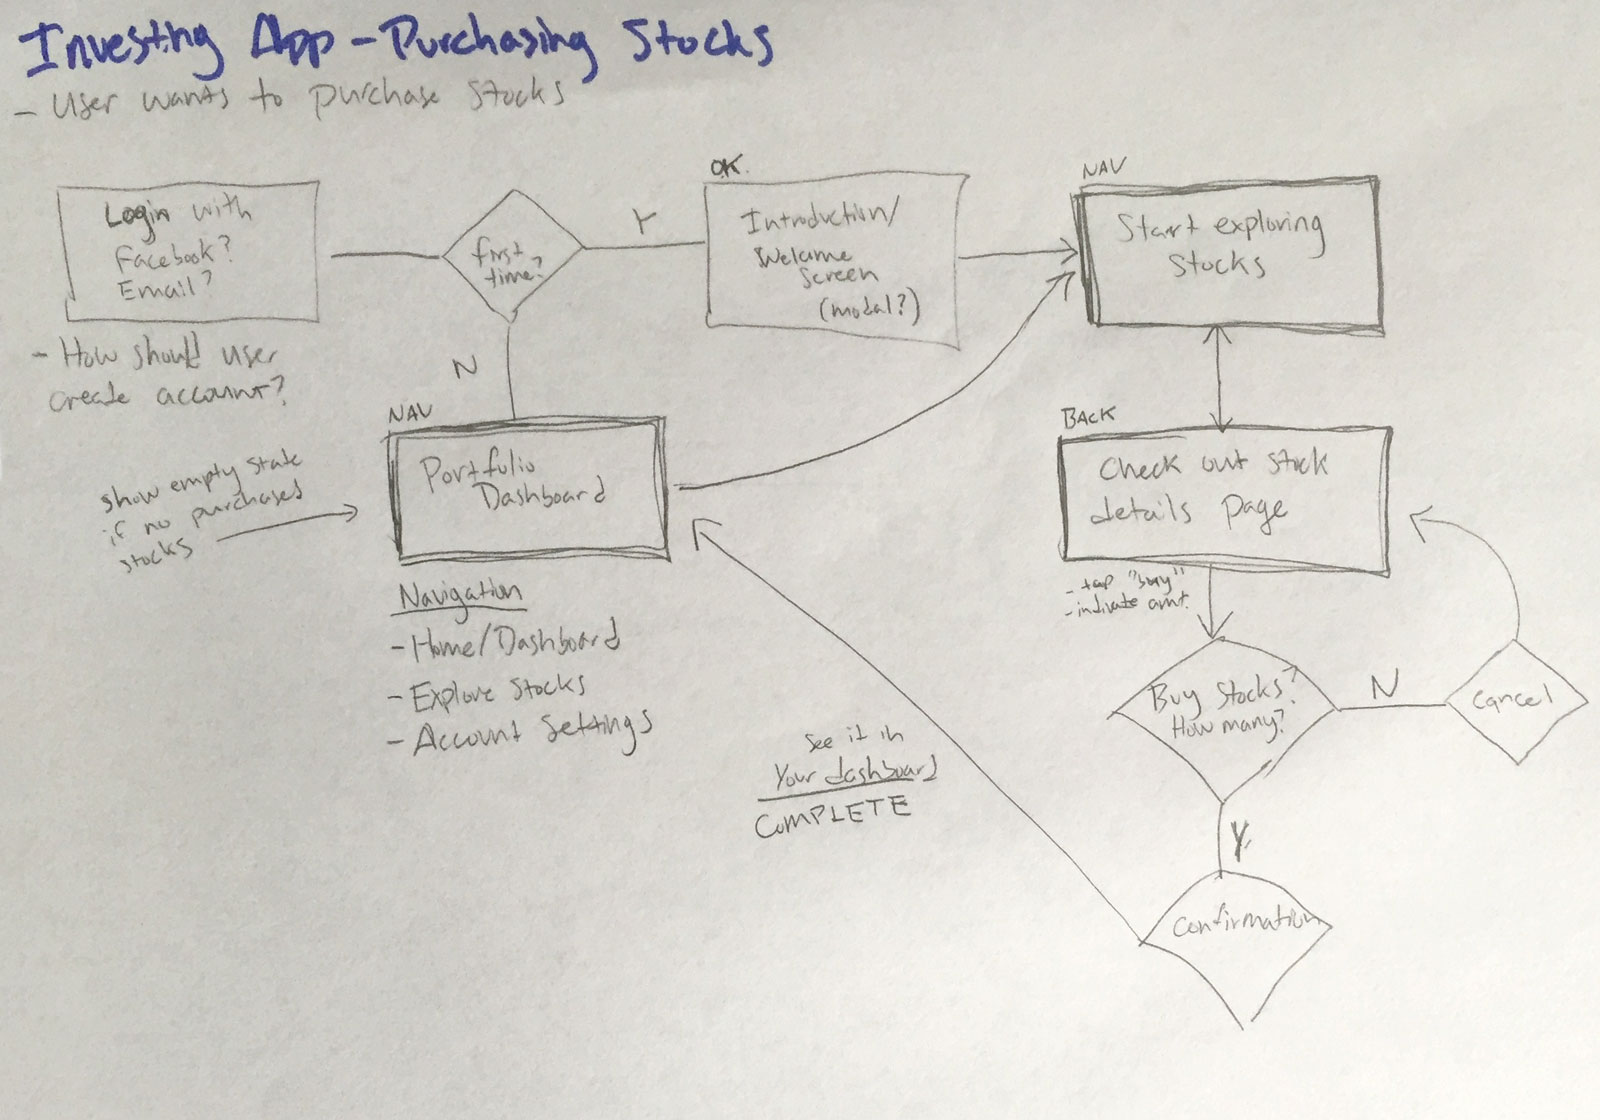 Investing App - Purchasing Stocks
- User wants to purchase stocks
Login with
Facebook?
Email?
- How should user
create account?
first
time?
Y
N
OK
Introduction/
Welcome
Screen
(modal?)
NAV
Start exploring
Stocks
NAV
Portfolio
Dashboard
show empty state
if no purchased
stocks
Navigation
- Home/Dashboard
- Explore Stocks
- Account Settings
BACK
Check out stock
details page
- tap "buy"
- indicate amt.
Buy Stocks?
How many?
N
Cancel
Y
Confirmation
See it in
Your dashboard
COMPLETE